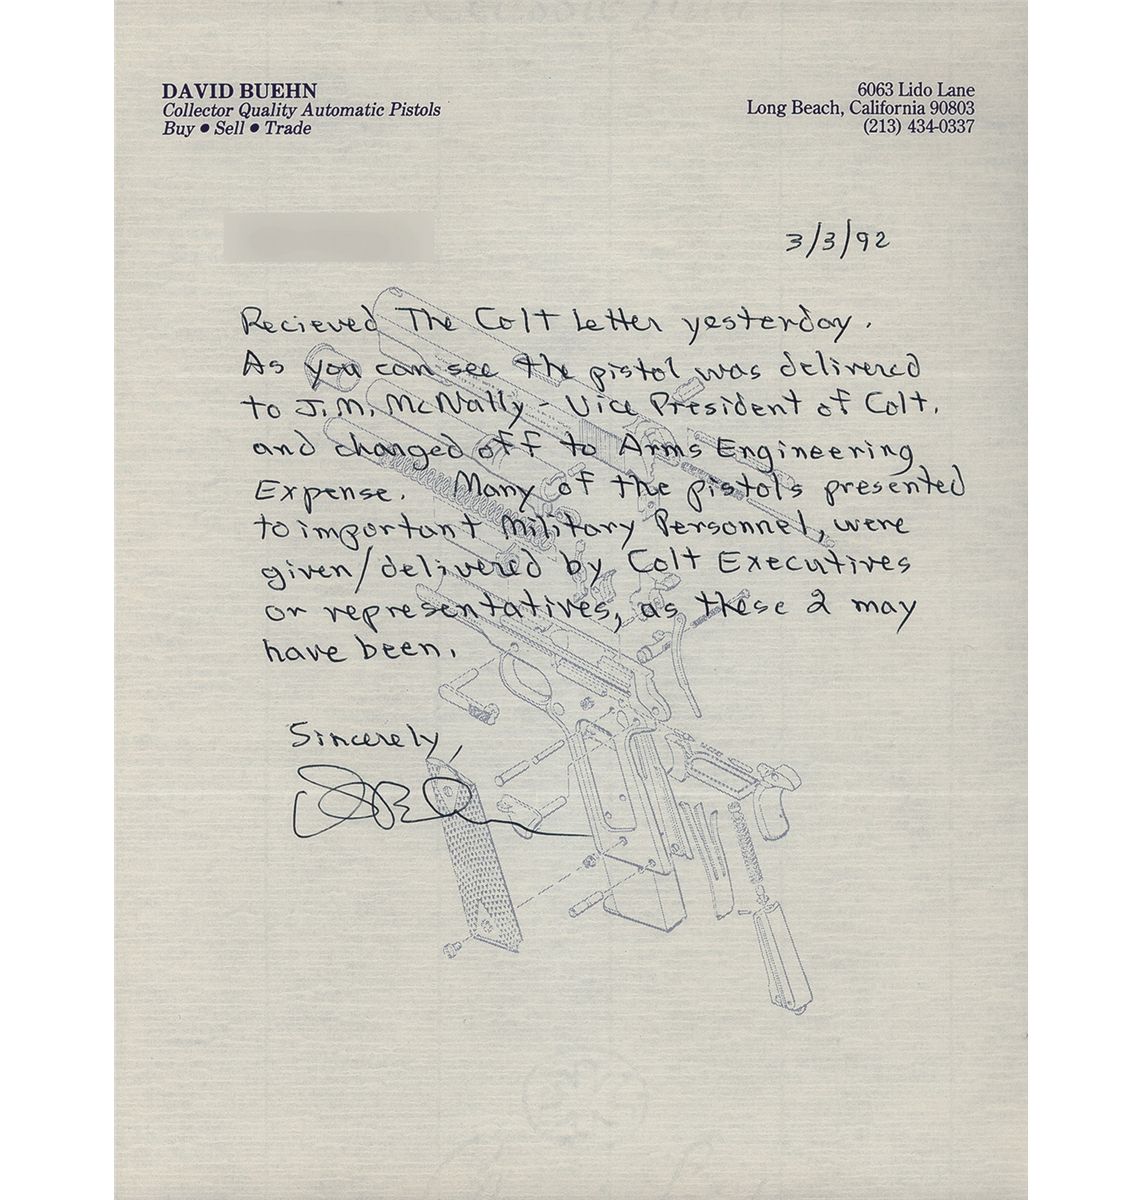 DAVID BUEHN
Collector Quality Automatic Pistols
Buy • Sell • Trade
6063 Lido Lane
Long Beach, California 90803
(213) 434-0337
3/3/92
Recieved The Colt Letter yesterday.
As you can see the pistol was delivered
to J.M. McNally - Vice President of Colt.
and changed off to Arms Engineering
Expense. Many of the pistols presented
to important Military Personnel, were
given/delivered by Colt Executives
or representatives, as these 2 may
have been.
Sincerely,